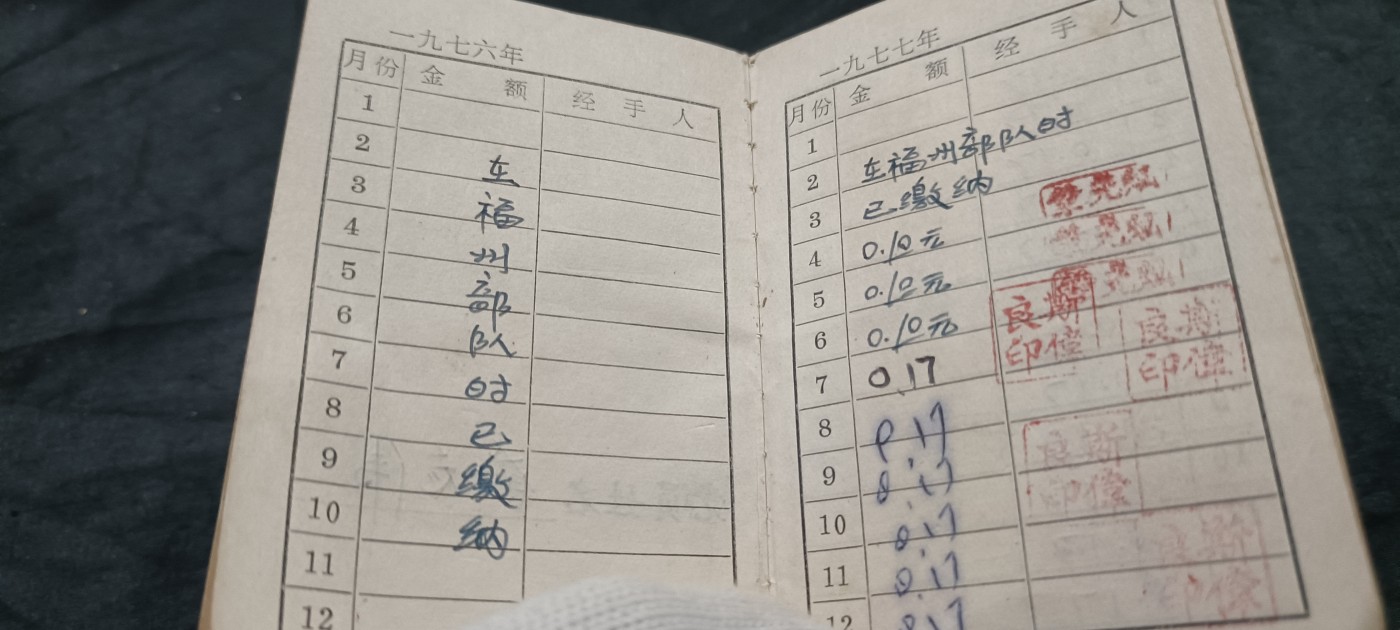 一九七六年
月份 金额 经手人
1
2
3
4
5
6
7
8
9
10
11
12
在
福
州
部
队
时
已
缴
纳
一九七七年
月份 金额 经手人
1
2 在福州部队时
3 已缴纳
4 0.10元
5 0.10元
6 0.10元
7 0.17
8 0.17
9 0.17
10 0.17
11 0.17
12 0.17
良斯
印偿
良斯
印偿
良斯
印偿
斯
印偿